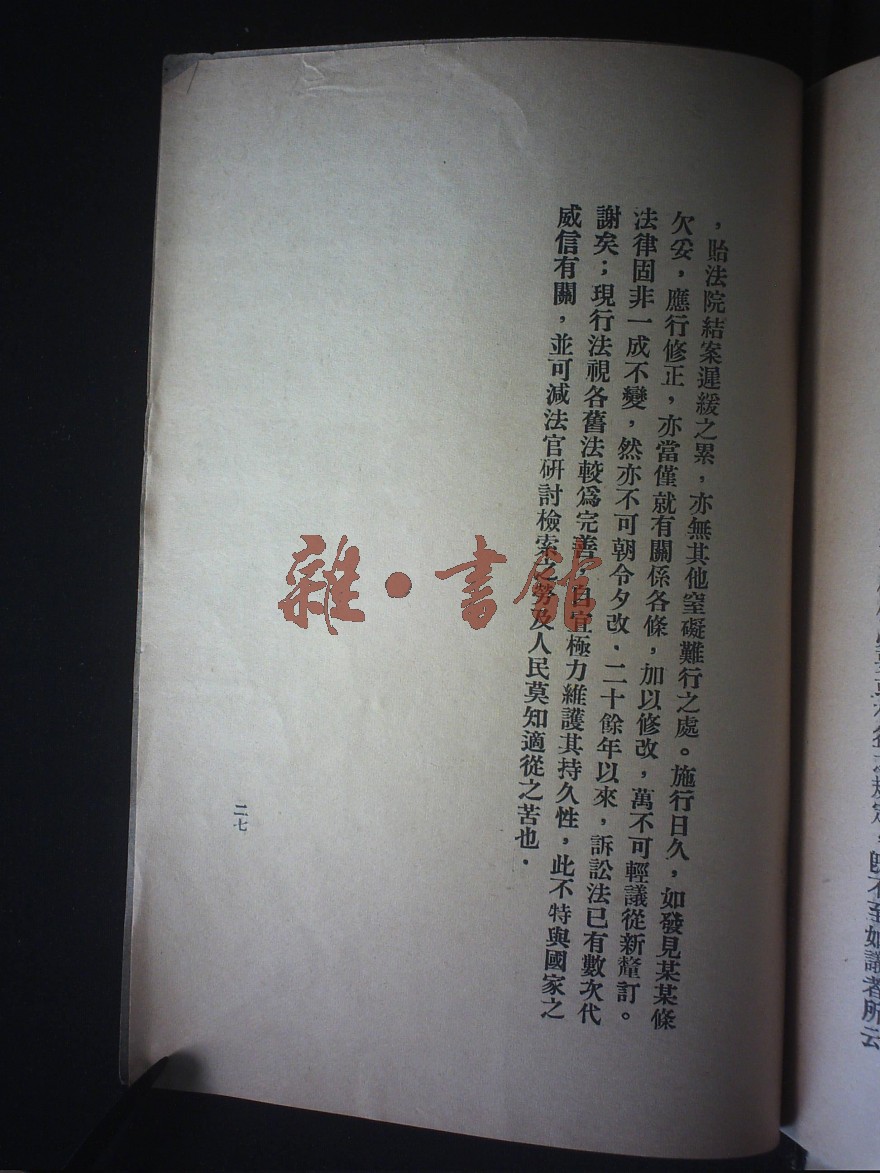 既不至如議者所云
，貽法院結案遲緩之累，亦無其他窒礙難行之處。施行日久，如發見某某條
欠妥，應行修正，亦當僅就有關係各條，加以修改，萬不可輕議從新釐訂。
法律固非一成不變，然亦不可朝令夕改．二十餘年以來，訴訟法已有數次代
謝矣；現行法視各舊法較爲完善，自宜極力維護其持久性，此不特與國家之
威信有關，並可減法官研討檢索之勞及人民莫知適從之苦也．
二七
雜・書館